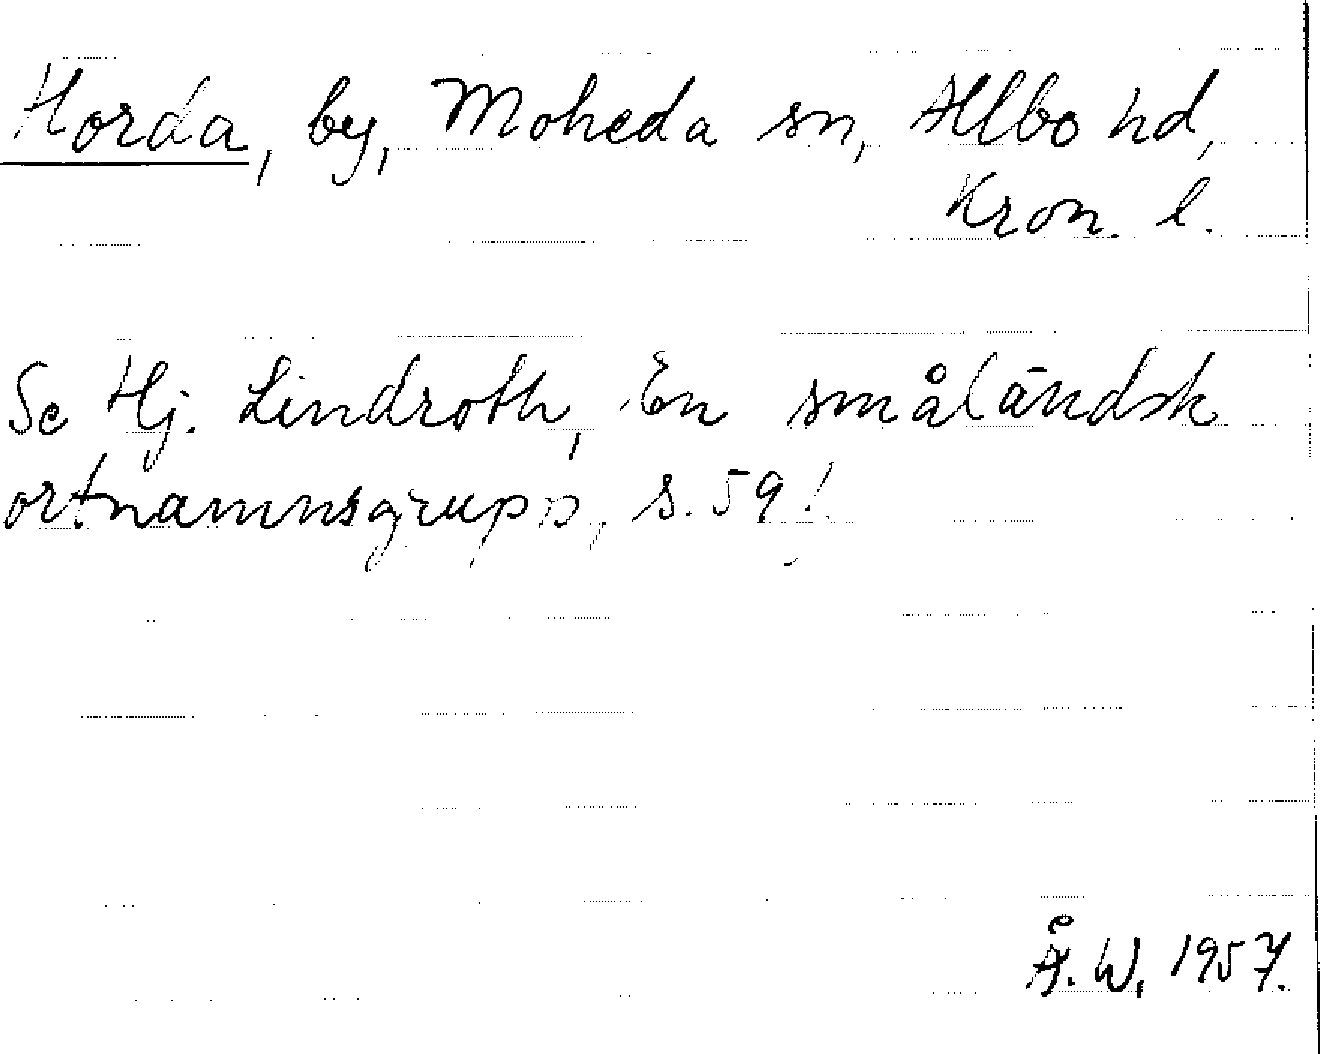 Horda, by, Moheda sn, Allbo hd,
Kron. l.
Se Hj. Lindroth, En småländsk
ortnamnsgrupp, s. 59!
Å. W. 1957.